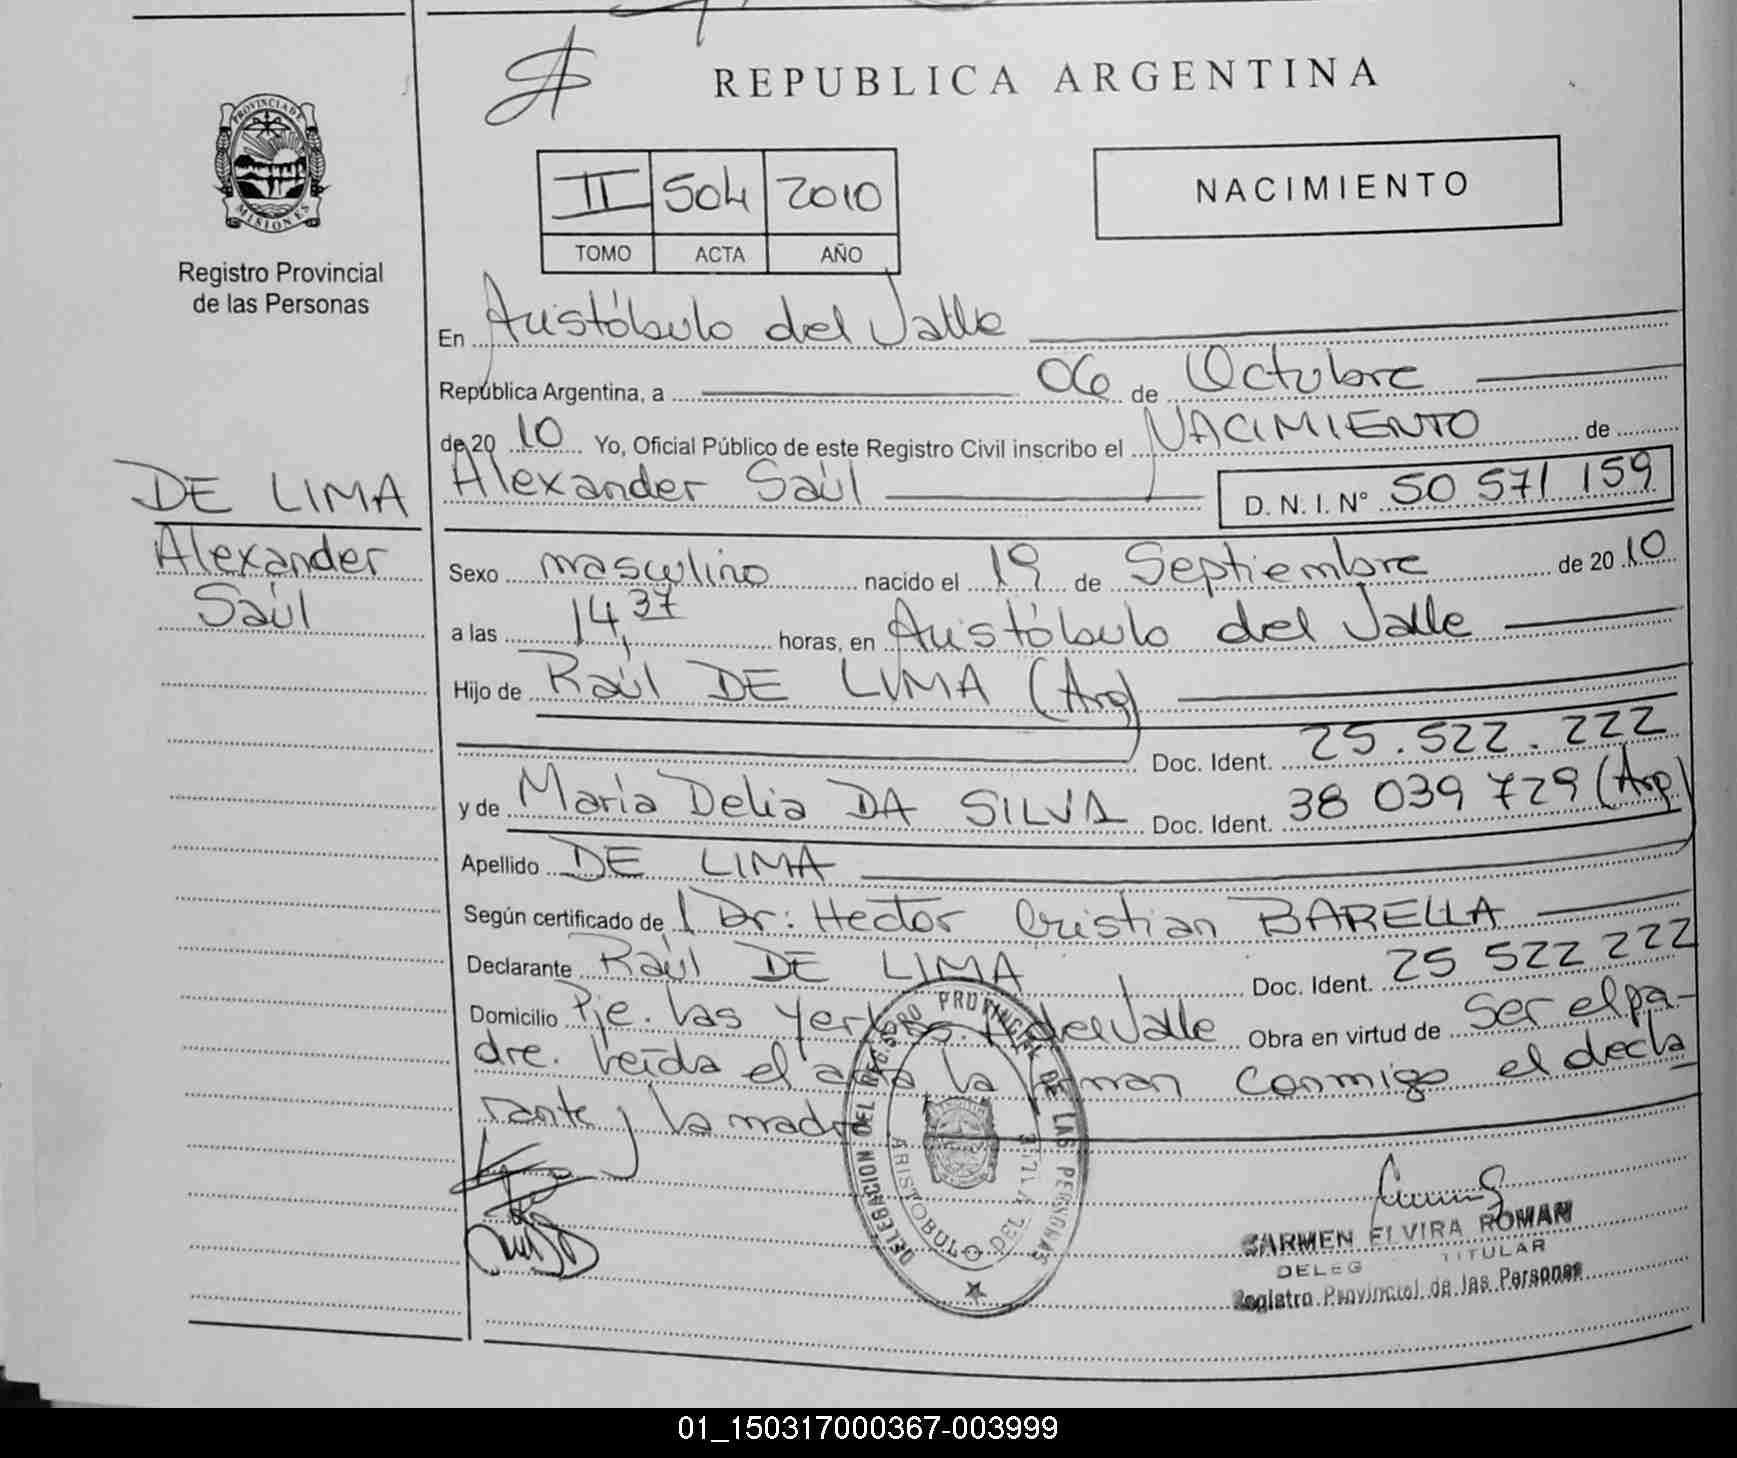 REPUBLICA ARGENTINA
PROVINCIA DE
MISIONES
Registro Provincial
de las Personas
II 504 2010
TOMO ACTA AÑO
NACIMIENTO
En Aristóbulo del Valle
República Argentina, a 06 de Octubre
de 20 10 Yo, Oficial Público de este Registro Civil inscribo el NACIMIENTO de
Alexander Saúl D. N. I. Nº 50 571 159
DE LIMA
Alexander
Saúl
Sexo masculino nacido el 19 de Septiembre de 20 10
a las 14,37 horas, en Aristóbulo del Valle
Hijo de Raúl DE LIMA (Arg)
Doc. Ident. 25.522.222
y de María Delia DA SILVA Doc. Ident. 38 039 729 (Arg)
Apellido DE LIMA
Según certificado de Dr: Hector Cristian BARELLA
Declarante Raúl DE LIMA Doc. Ident. 25 522 222
Domicilio Pje. Las Yerbas. A del Valle Obra en virtud de Ser el pa-
dre. Leída el acta la firman conmigo el decla
rante y la madre
DELEGACION DEL REGISTRO PROVINCIAL DE LAS PERSONAS
ARISTOBULO DEL VALLE
CARMEN ELVIRA ROMAN
DELEG TITULAR
Registro Provincial de las Personas
01_150317000367-003999